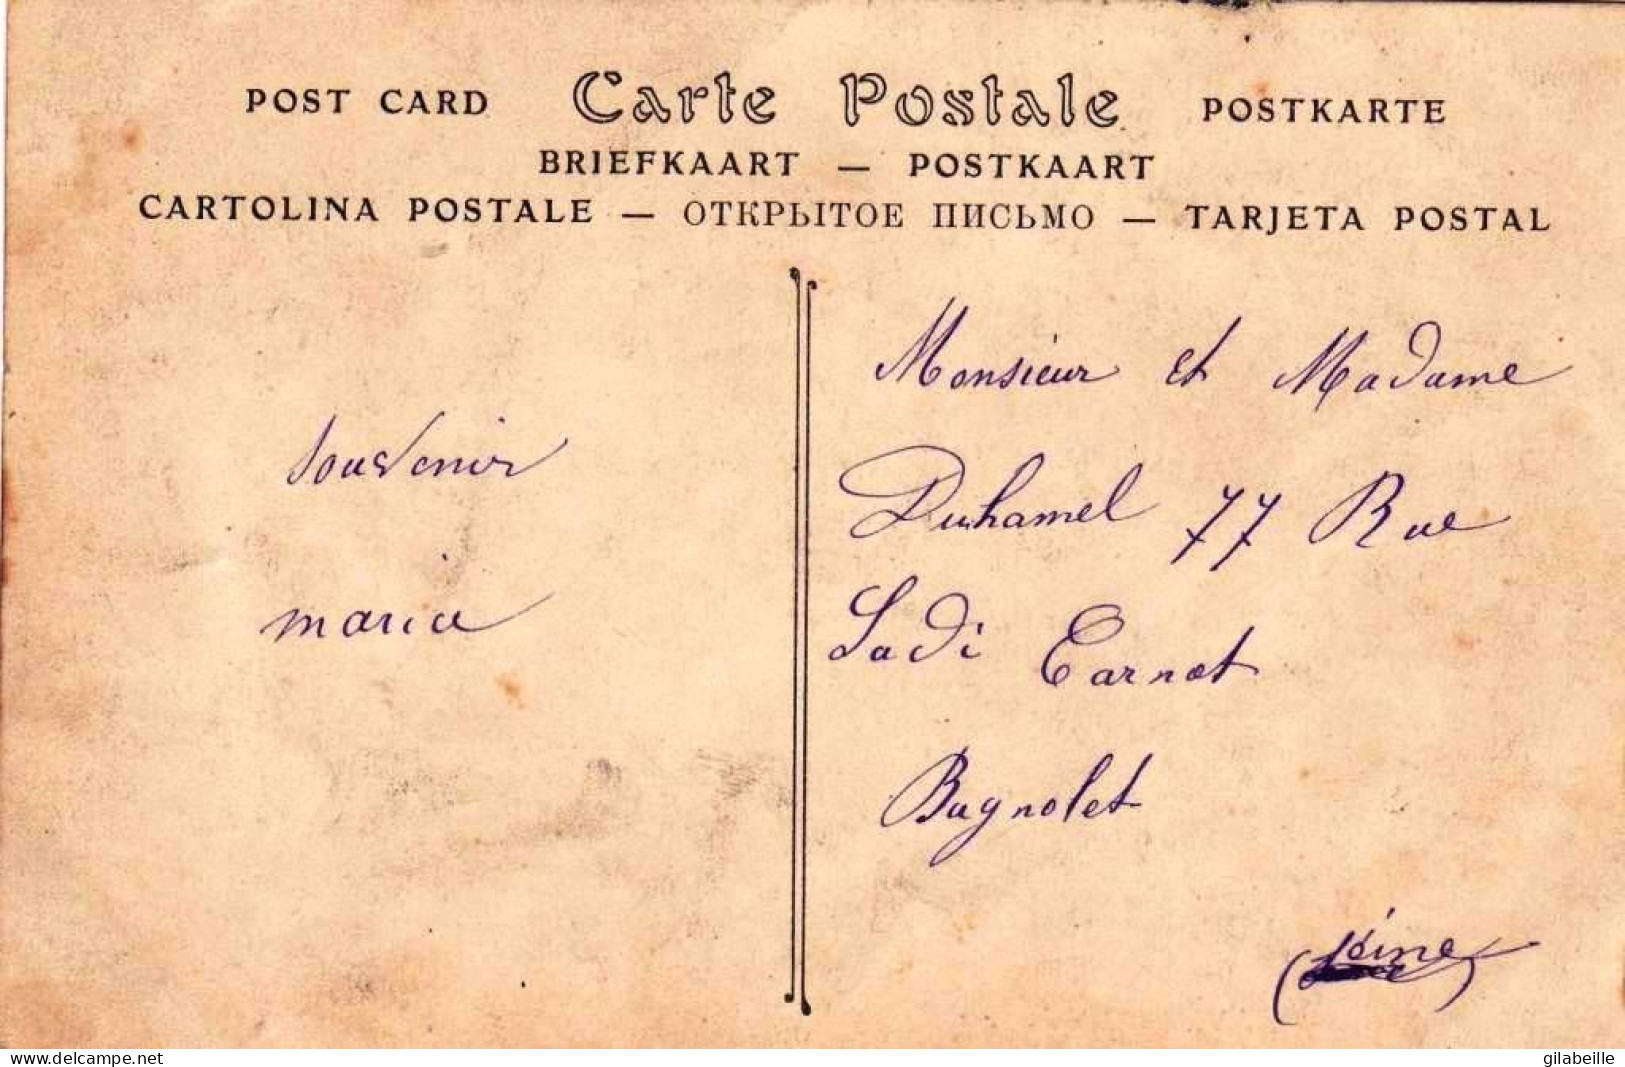 POST CARD Carte Postale POSTKARTE
BRIEFKAART — POSTKAART
CARTOLINA POSTALE — ОТКРЫТОЕ ПИСЬМО — TARJETA POSTAL
souvenir
maria
Monsieur et Madame
Duhamel 77 Rue
Sadi Carnot
Bagnolet
(Seine)
www.delcampe.net
gilabeille